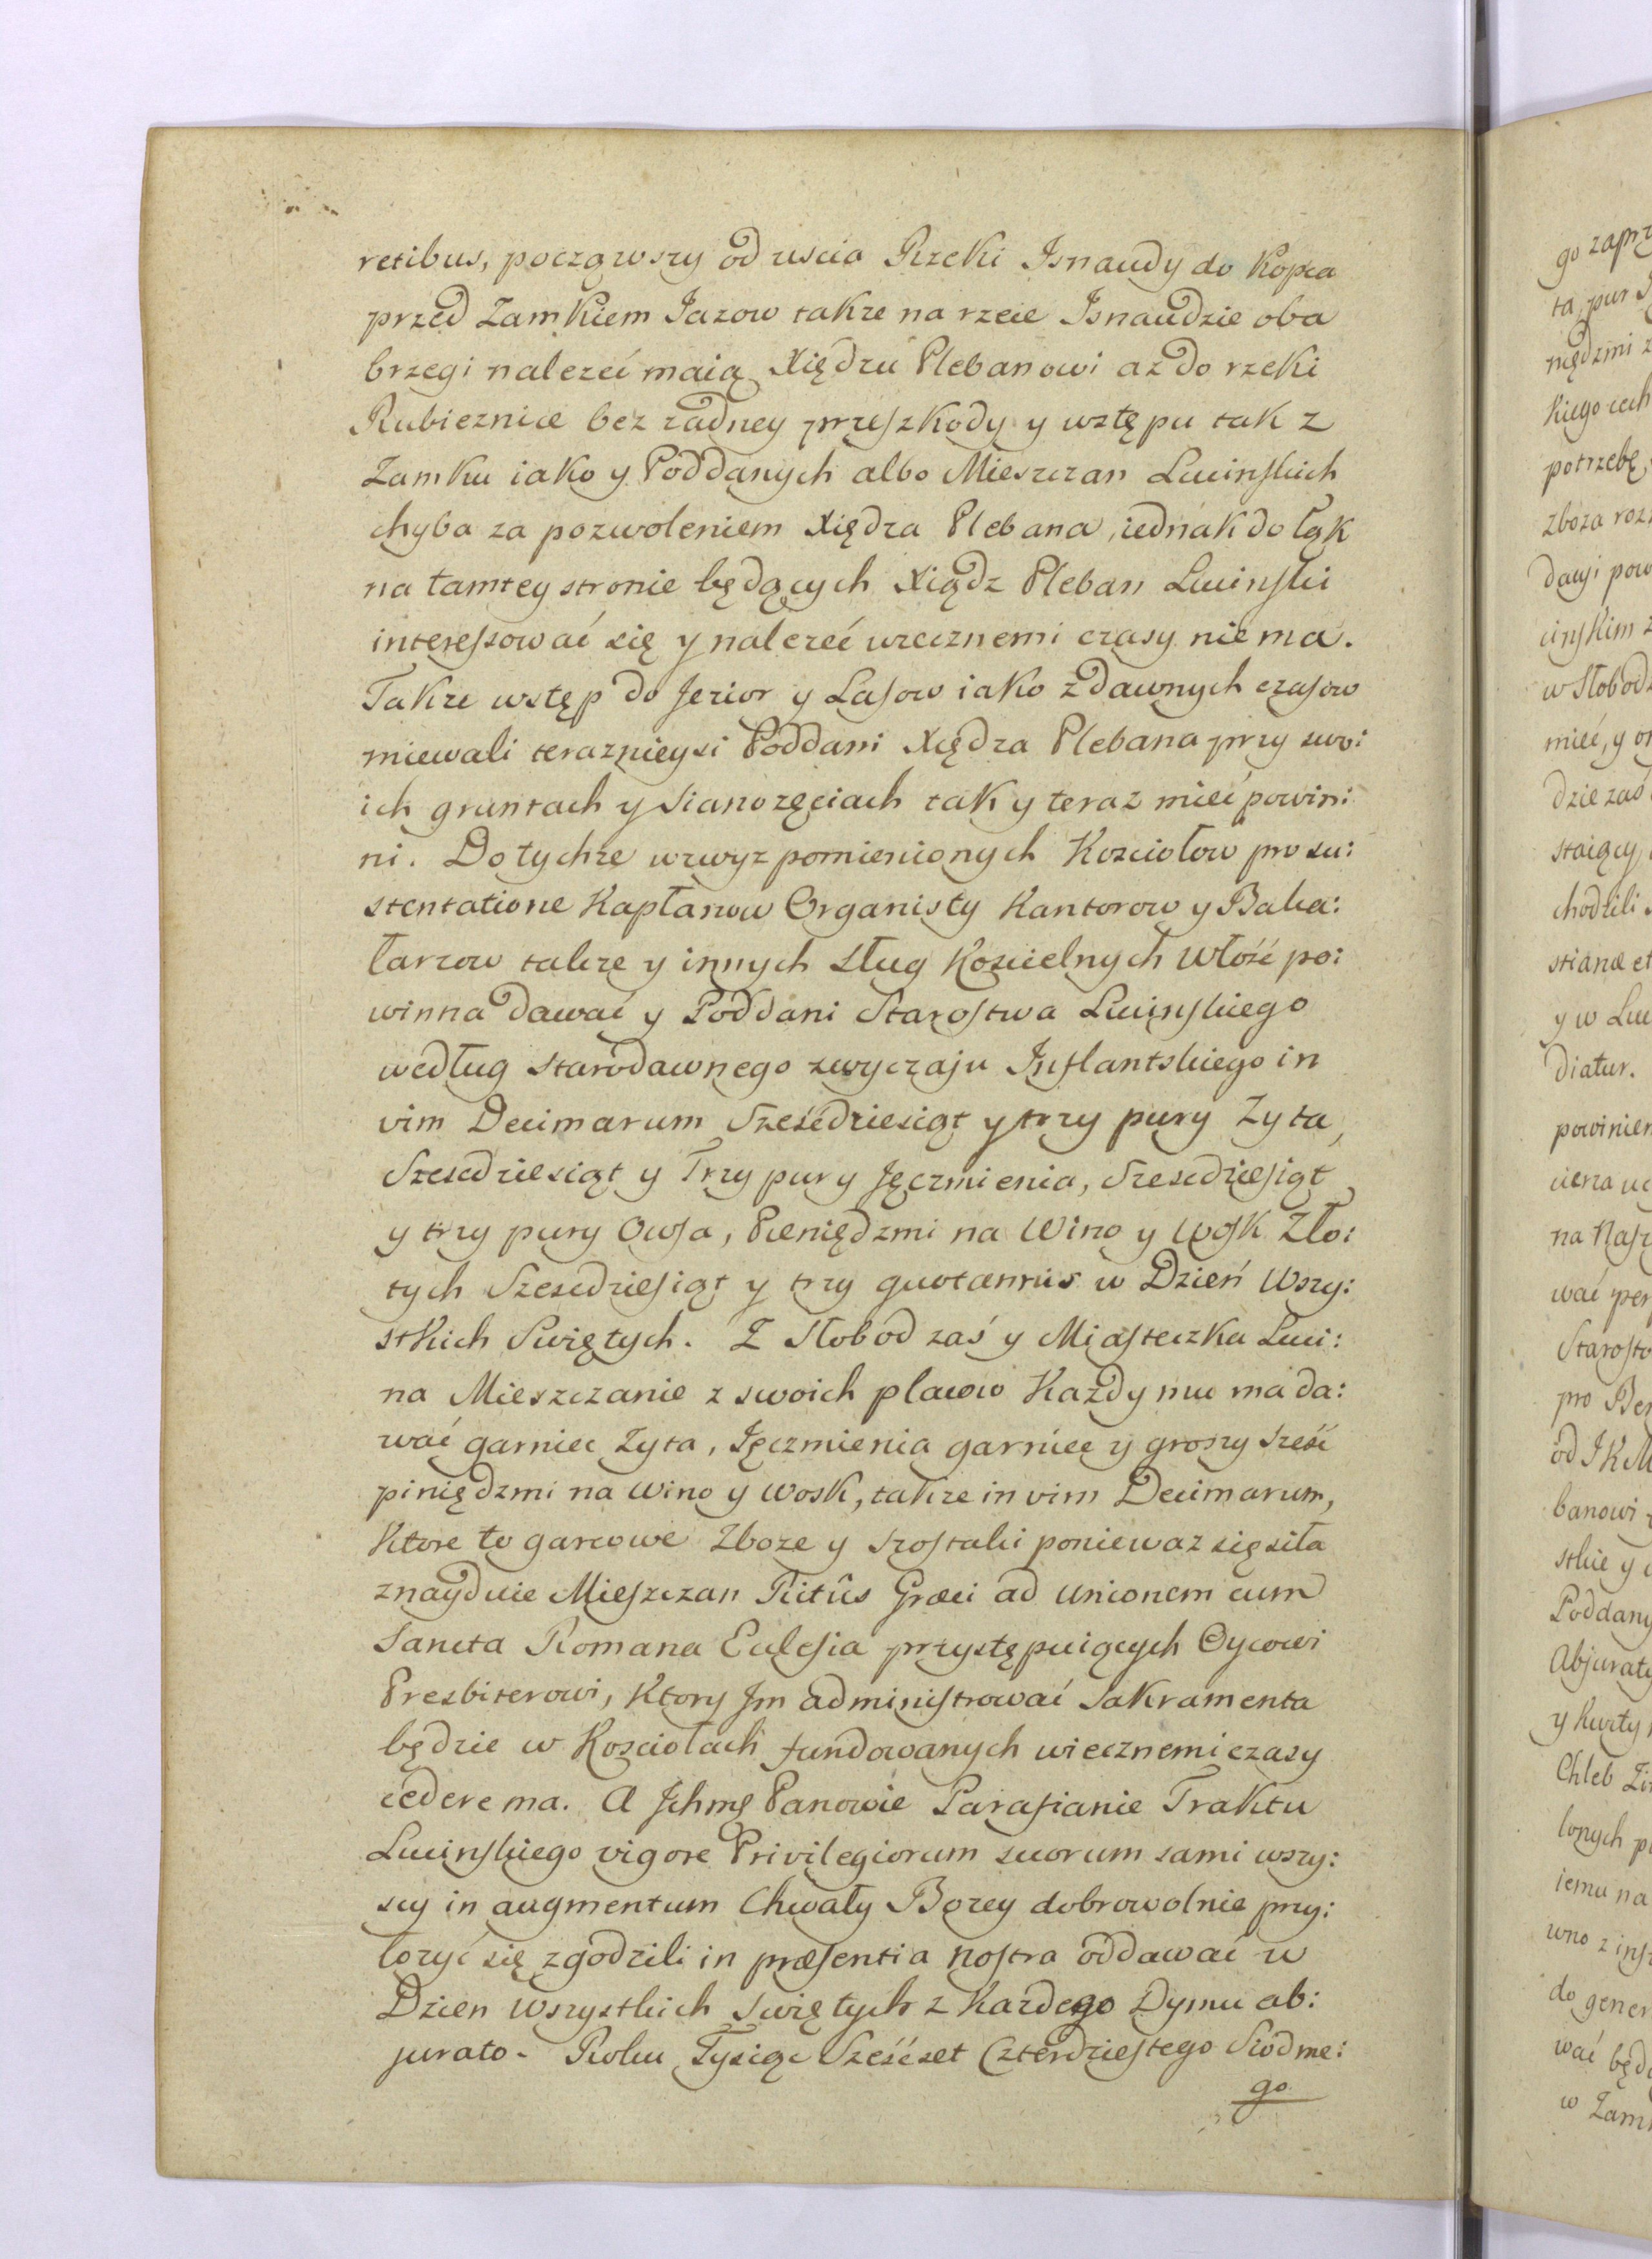 retibus, począwszy od uscia Rzeki Isnaudy do Kopca
przed Zamkiem Jazow takze na rzece Isnaudzie oba
brzegi nalezeć maią Xiędzu Plebanowi az do rzeki
Rubieznice bez zadney przeszkody y wstępu tak z
Zamku iako y Poddanych albo Mieszczan Lucinskich
chyba za pozwoleniem Xiędza Plebana, iednak do łąk
na tamtey stronie będących Xiądz Pleban Lucinski
interessować się y nalezeć wiecznemi czasy nie ma.
Takze wstęp do Jezior y Lasow iako z dawnych czasow
miewali teraznieysi Poddani Xiędza Plebana przy swo:
ich gruntach y Sianozęciach tak y teraz mieć powin:
ni. Do tychze wzwyz pomienionych Kosciołow pro su:
stentatione Kapłanow Organisty Kantorow y Baka:
łarzow takze y innych sług Koscielnych Włość po:
winna dawać y Poddani Starostwa Lucinskiego
według starodawnego zwyczaju Inflantskiego in
vim Decimarum Sześćdziesiąt y trzy pury Zyta,
Szescdziesiąt y Trzy pury Jęczmienia, Szescdziesiąt
y trzy pury Owsa, Pieniędzmi na Wino y Wosk Zło:
tych Szescdziesiąt y trzy quotannis w Dzień Wszy:
stkich Swiętych. Z Słobod zaś y Miasteczka Luci:
na Mieszczanie z swoich placow Kazdy mu ma da:
wać garniec Zyta, Jęczmienia garniec y groszy sześć
piniędzmi na wino y wosk, takze in vim Decimarum,
Ktore to garcowe Zboze y szostaki poniewaz się siła
znayduie Mieszczan Ritûs Græci ad Unionem cum
Sancta Romana Eclesia przystępuiących Oycowi
Presbiterowi, Ktory Jm administrować Sakramenta
będzie w Kosciołach fundowanych wiecznemi czasy
cedere ma. A Jchmę Panowie Parafianie Traktu
Lucinskiego vigore Privilegiorum suorum sami wszy:
scy in augmentum Chwały Bozey dobrowolnie przy:
lozyć się zgodzili in præsentia nostra oddawać w
Dzien Wszystkich Swiętych z Kazdego Dymu ab:
jurato. Roku Tysiąc Sześćset Czterdziestego Siodme:
go